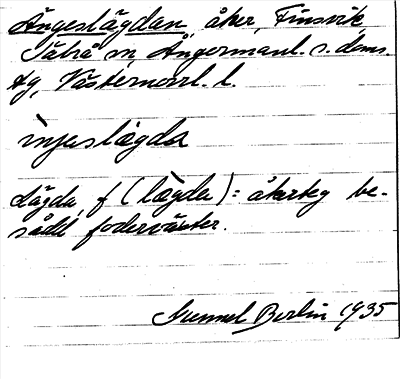 Ängeslägdan, åker, Finsvik,
Säbrå sn, Ångermanl. s. doms.
tg, Västernorrl. l.
ìŋeslægda
Lägda f (lægda) = åkerteg be-
sådd foderväxter.
Gunnel Berlin 1935